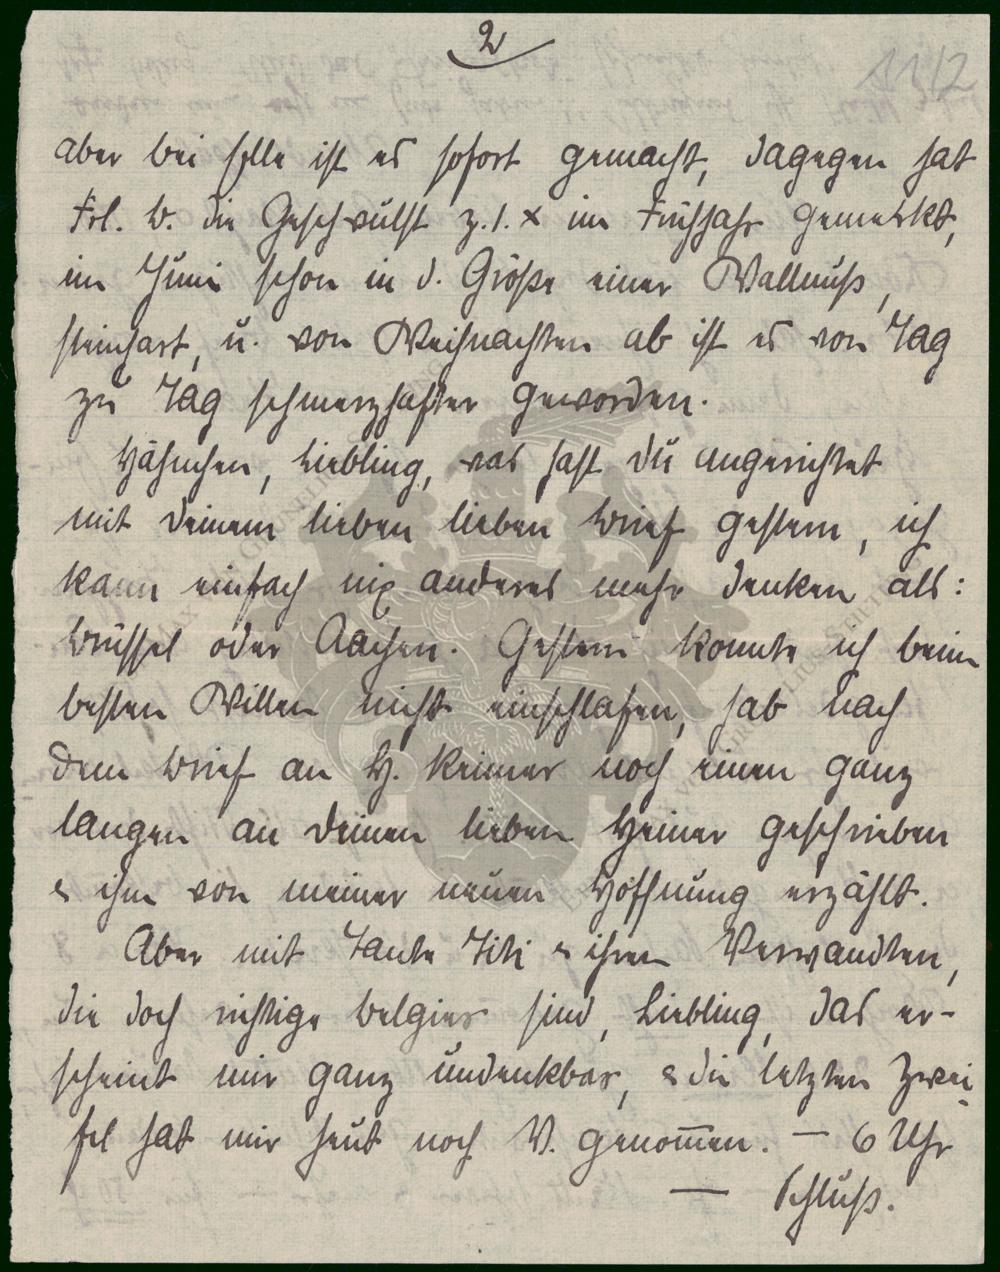 2
11/2
aber bei Elle ist es sofort gemacht, dagegen hat
Frl. B. die Geschwulst z. 1. x im Frühjahr gemerkt,
im Juni schon in d. Größe einer Wallnuß,
steinhart, u. von Weihnachten ab ist es von Tag
zu Tag schmerzhafter geworden.
Hähnchen, Liebling, was hast Du angerichtet
mit Deinem lieben lieben Brief gestern, ich
kann einfach nix anderes mehr denken als:
Brüssel oder Aachen. Gestern konnte ich beim
besten Willen nicht einschlafen, hab nach
dem Brief an H. Reimer noch einen ganz
langen an Deinen lieben Heiner geschrieben
& ihm von meiner neuen Hoffnung erzählt.
Aber mit Tante Titi & ihren Verwandten,
die doch richtige Belgier sind, Liebling, das er-
scheint mir ganz undenkbar, & die letzten Zwei-
fel hat mir heut noch V. genommen. — 6 Uhr
— Schluß.